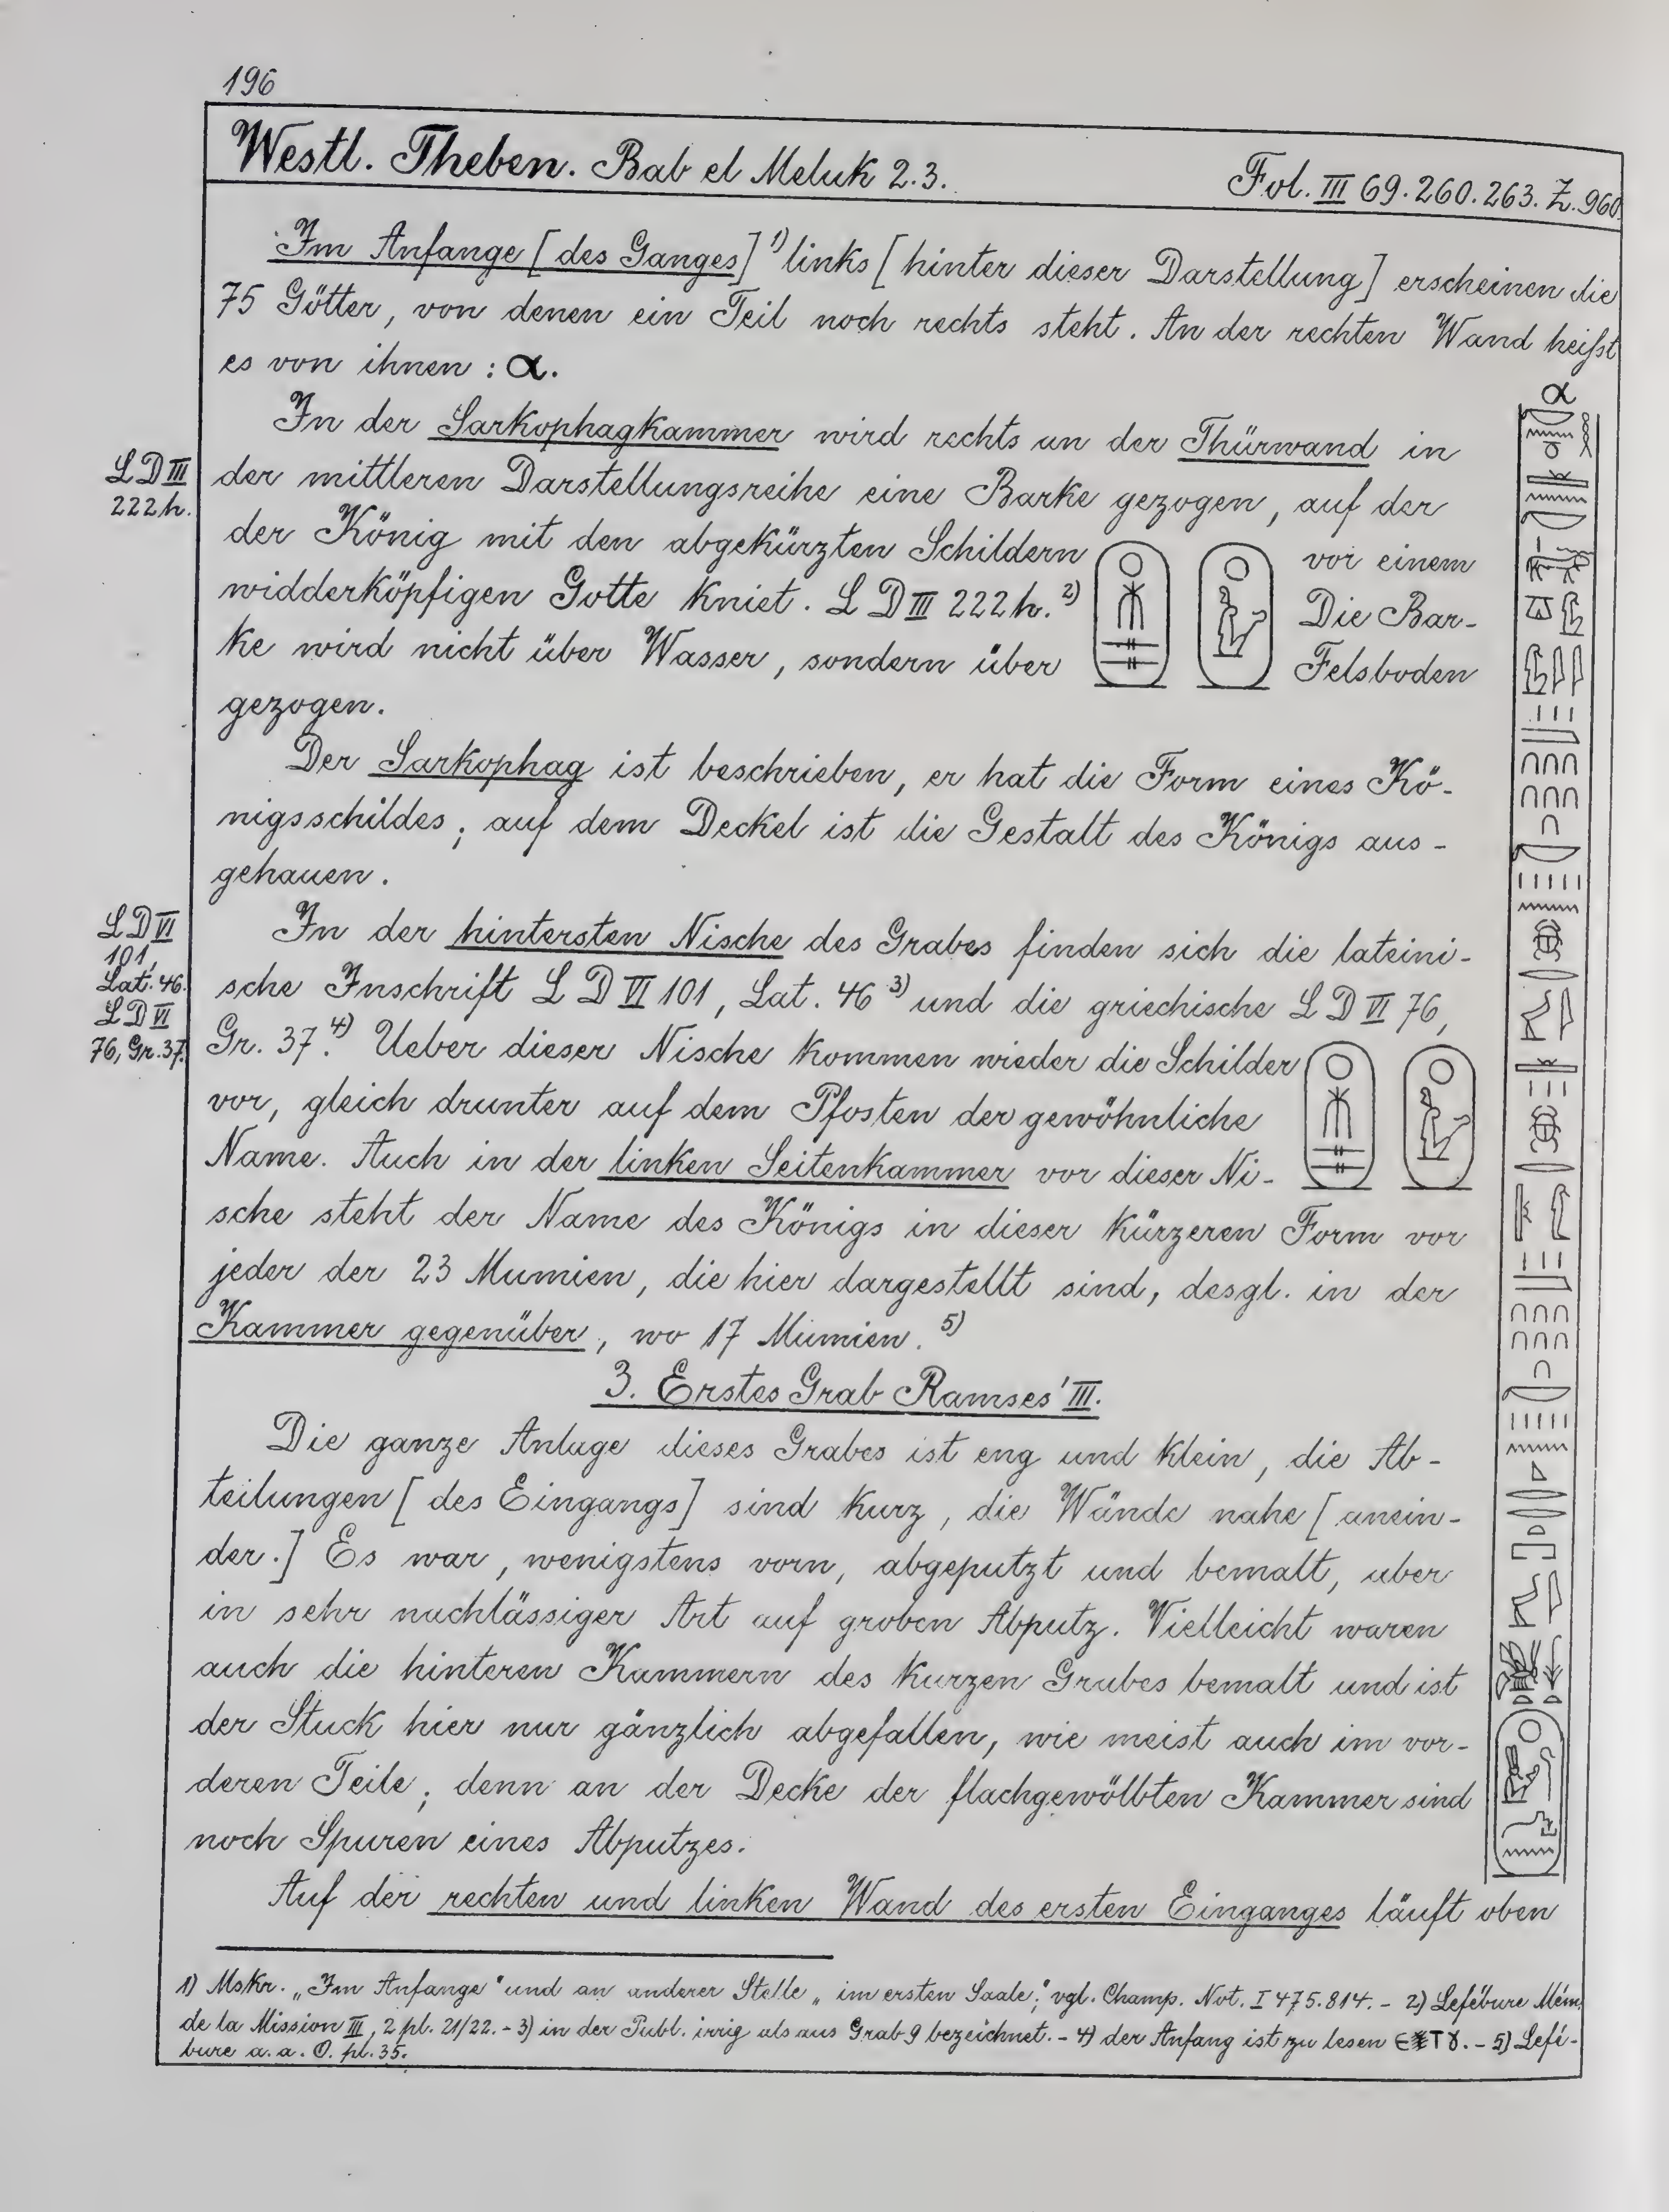 196
Westl. Theben. Bab el Meluk 2.3. Fol. III 69.260.263. Z. 960.
Im Anfange [des Ganges] 1) links [hinter dieser Darstellung] erscheinen die
75 Götter, von denen ein Teil noch rechts steht. An der rechten Wand heißt
es von ihnen : α.
α
In der Sarkophagkammer wird rechts an der Thürwand in
LD III
222h.
der mittleren Darstellungsreihe eine Barke gezogen, auf der
der König mit den abgekürzten Schildern vor einem
widderköpfigen Gotte kniet. LD III 222h. 2) Die Bar-
ke wird nicht über Wasser, sondern über Felsboden
gezogen.
Der Sarkophag ist beschrieben, er hat die Form eines Kö-
nigsschildes; auf dem Deckel ist die Gestalt des Königs aus-
gehauen.
LD VI
101,
Lat. 46.
LD VI
76, Gr. 37.
In der hintersten Nische des Grabes finden sich die lateini-
sche Inschrift LD VI 101, Lat. 46 3) und die griechische LD VI 76,
Gr. 37. 4) Ueber dieser Nische kommen wieder die Schilder
vor, gleich drunter auf dem Pfosten der gewöhnliche
Name. Auch in der linken Seitenkammer vor dieser Ni-
sche steht der Name des Königs in dieser kürzeren Form vor
jeder der 23 Mumien, die hier dargestellt sind, desgl. in der
Kammer gegenüber, wo 17 Mumien. 5)
3. Erstes Grab Ramses' III.
Die ganze Anlage dieses Grabes ist eng und klein, die Ab-
teilungen [des Eingangs] sind kurz, die Wände nahe [anein-
der.] Es war, wenigstens vorn, abgeputzt und bemalt, aber
in sehr nachlässiger Art auf groben Abputz. Vielleicht waren
auch die hinteren Kammern des kurzen Grabes bemalt und ist
der Stuck hier nur gänzlich abgefallen, wie meist auch im vor-
deren Teile; denn an der Decke der flachgewölbten Kammer sind
noch Spuren eines Abputzes.
Auf der rechten und linken Wand des ersten Einganges läuft oben
1) Mskr. „Im Anfange" und an anderer Stelle „im ersten Saale"; vgl. Champ. Not. I 475.814. – 2) Lefébure Mém.
de la Mission III, 2 pl. 21/22. – 3) in der Publ. irrig als aus Grab 9 bezeichnet. – 4) der Anfang ist zu lesen – 5) Lefé-
bure a. a. O. pl. 35.